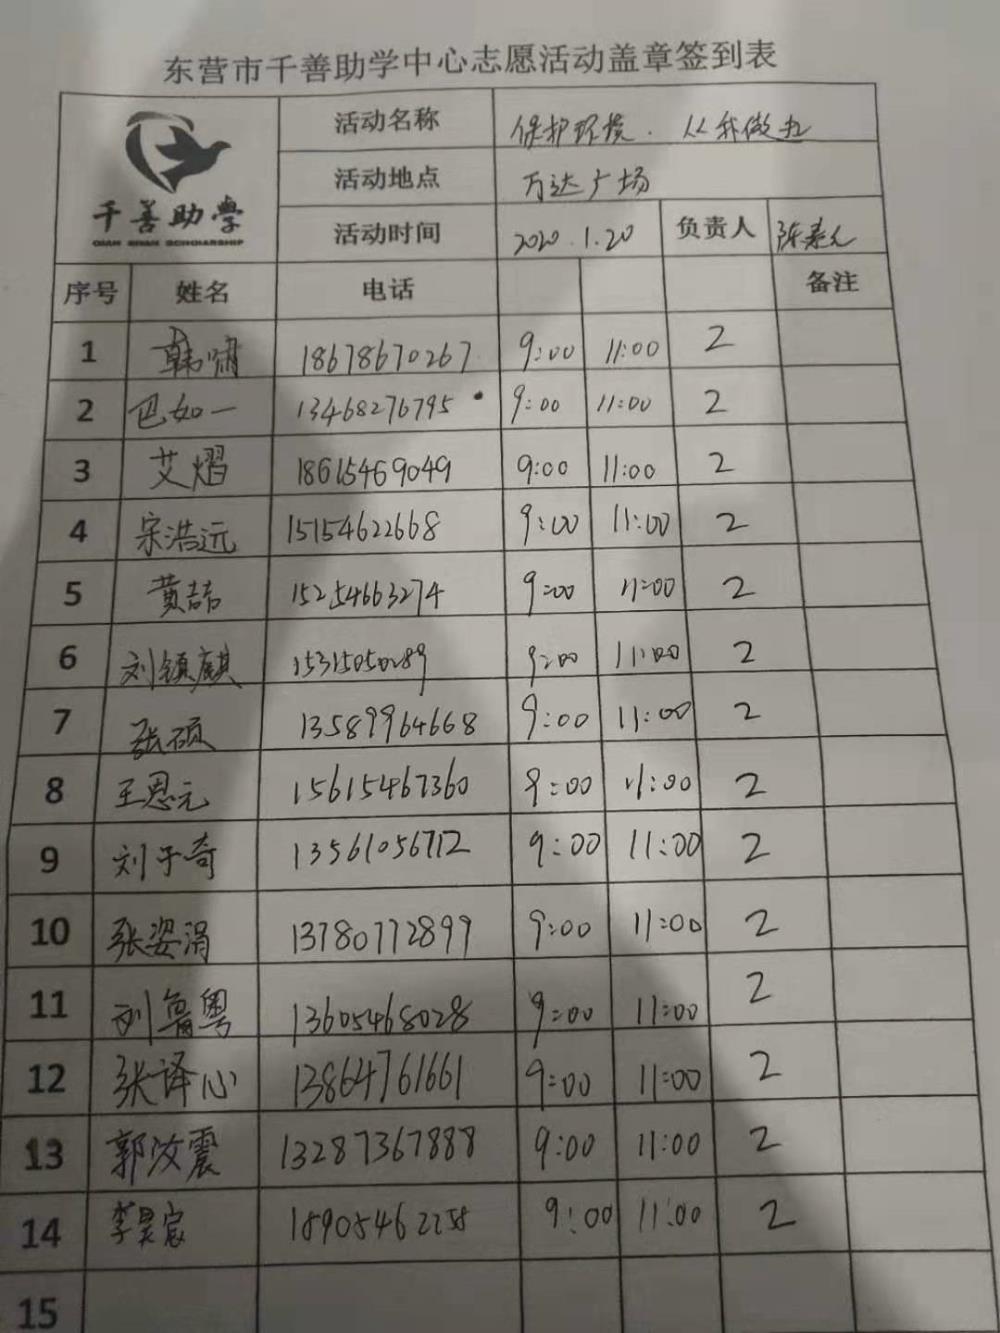 东营市千善助学中心志愿活动盖章签到表
千善助學
QIAN SHAN SCHOLARSHIP
活动名称 保护环境.从我做起
活动地点 万达广场
活动时间 2020.1.20 负责人
序号 姓名 电话 备注
1 韩啸 18678670267 9:00 11:00 2
2 巴如一 13468276795 9:00 11:00 2
3 艾熠 18615469049 9:00 11:00 2
4 宋浩远 15154622668 9:00 11:00 2
5 黄喆 15254663274 9:00 11:00 2
6 刘镇麒 15315050289 9:00 11:00 2
7 张硕 13589964668 9:00 11:00 2
8 王恩元 15615467360 9:00 11:00 2
9 刘于奇 13561056712 9:00 11:00 2
10 张姿涓 13780772899 9:00 11:00 2
11 刘鲁粤 13605468028 9:00 11:00 2
12 张译心 13864761661 9:00 11:00 2
13 郭汝震 13287367888 9:00 11:00 2
14 李昊宸 18905462258 9:00 11:00 2
15